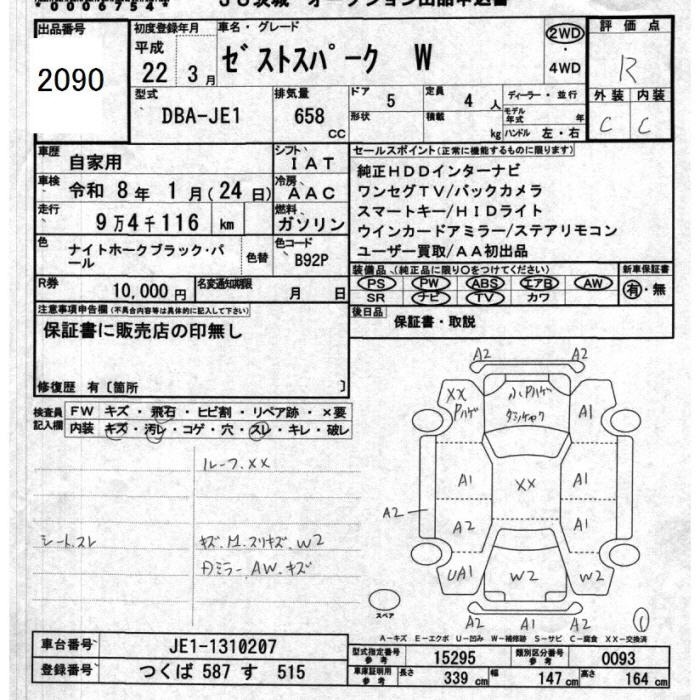 出品番号 2090
初度登録年月 平成 22年 3月
車名・グレード ゼストスパーク W
2WD・4WD
評価点 R
外装 C 内装 C
型式 DBA-JE1
排気量 658 CC
ドア 5
定員 4人
ディーラー・並行
形状
積載 kg
モデル年式 年
ハンドル 左・右
車歴 自家用
シフト IAT
車検 令和 8年 1月(24日)
冷房 AAC
走行 9万4千116 km
燃料 ガソリン
色 ナイトホークブラック・パール
色替
色コード B92P
R券 10,000円
名変通知期限 月 日
セールスポイント(正常に機能するものに限ります)
純正HDDインターナビ
ワンセグTV/バックカメラ
スマートキー/HIDライト
ウインカードアミラー/ステアリモコン
ユーザー買取/AA初出品
装備品(純正品に限り○をつけてください) 新車保証書
PS PW ABS エアB AW 有・無
SR ナビ TV カワ
後日品 保証書・取説
注意事項申告欄(不具合内容等は具体的に記入して下さい)
保証書に販売店の印無し
修復歴 有〔箇所 〕
検査員記入欄
FW キズ・飛石・ヒビ割・リペア跡・×要
内装 キズ・汚レ・コゲ・穴・スレ・キレ・破レ
ルーフ.XX
シート.スレ
キズ.M.スリキズ.W2
Dミラー.AW.キズ
A2 A2
XX Pハゲ
小Pハゲ
A1
A1 XX A1
A2 A2 A1
UA1 W2 W2
A2 A1 A2
スペア
A−キズ E−エクボ U−凹み W−補修跡 S−サビ C−腐食 XX−交換済
車台番号 JE1-1310207
登録番号 つくば 587 す 515
型式指定番号 参考 15295
類別区分番号 参考 0093
車庫証明用 参考 長さ 339 cm 幅 147 cm 高さ 164 cm